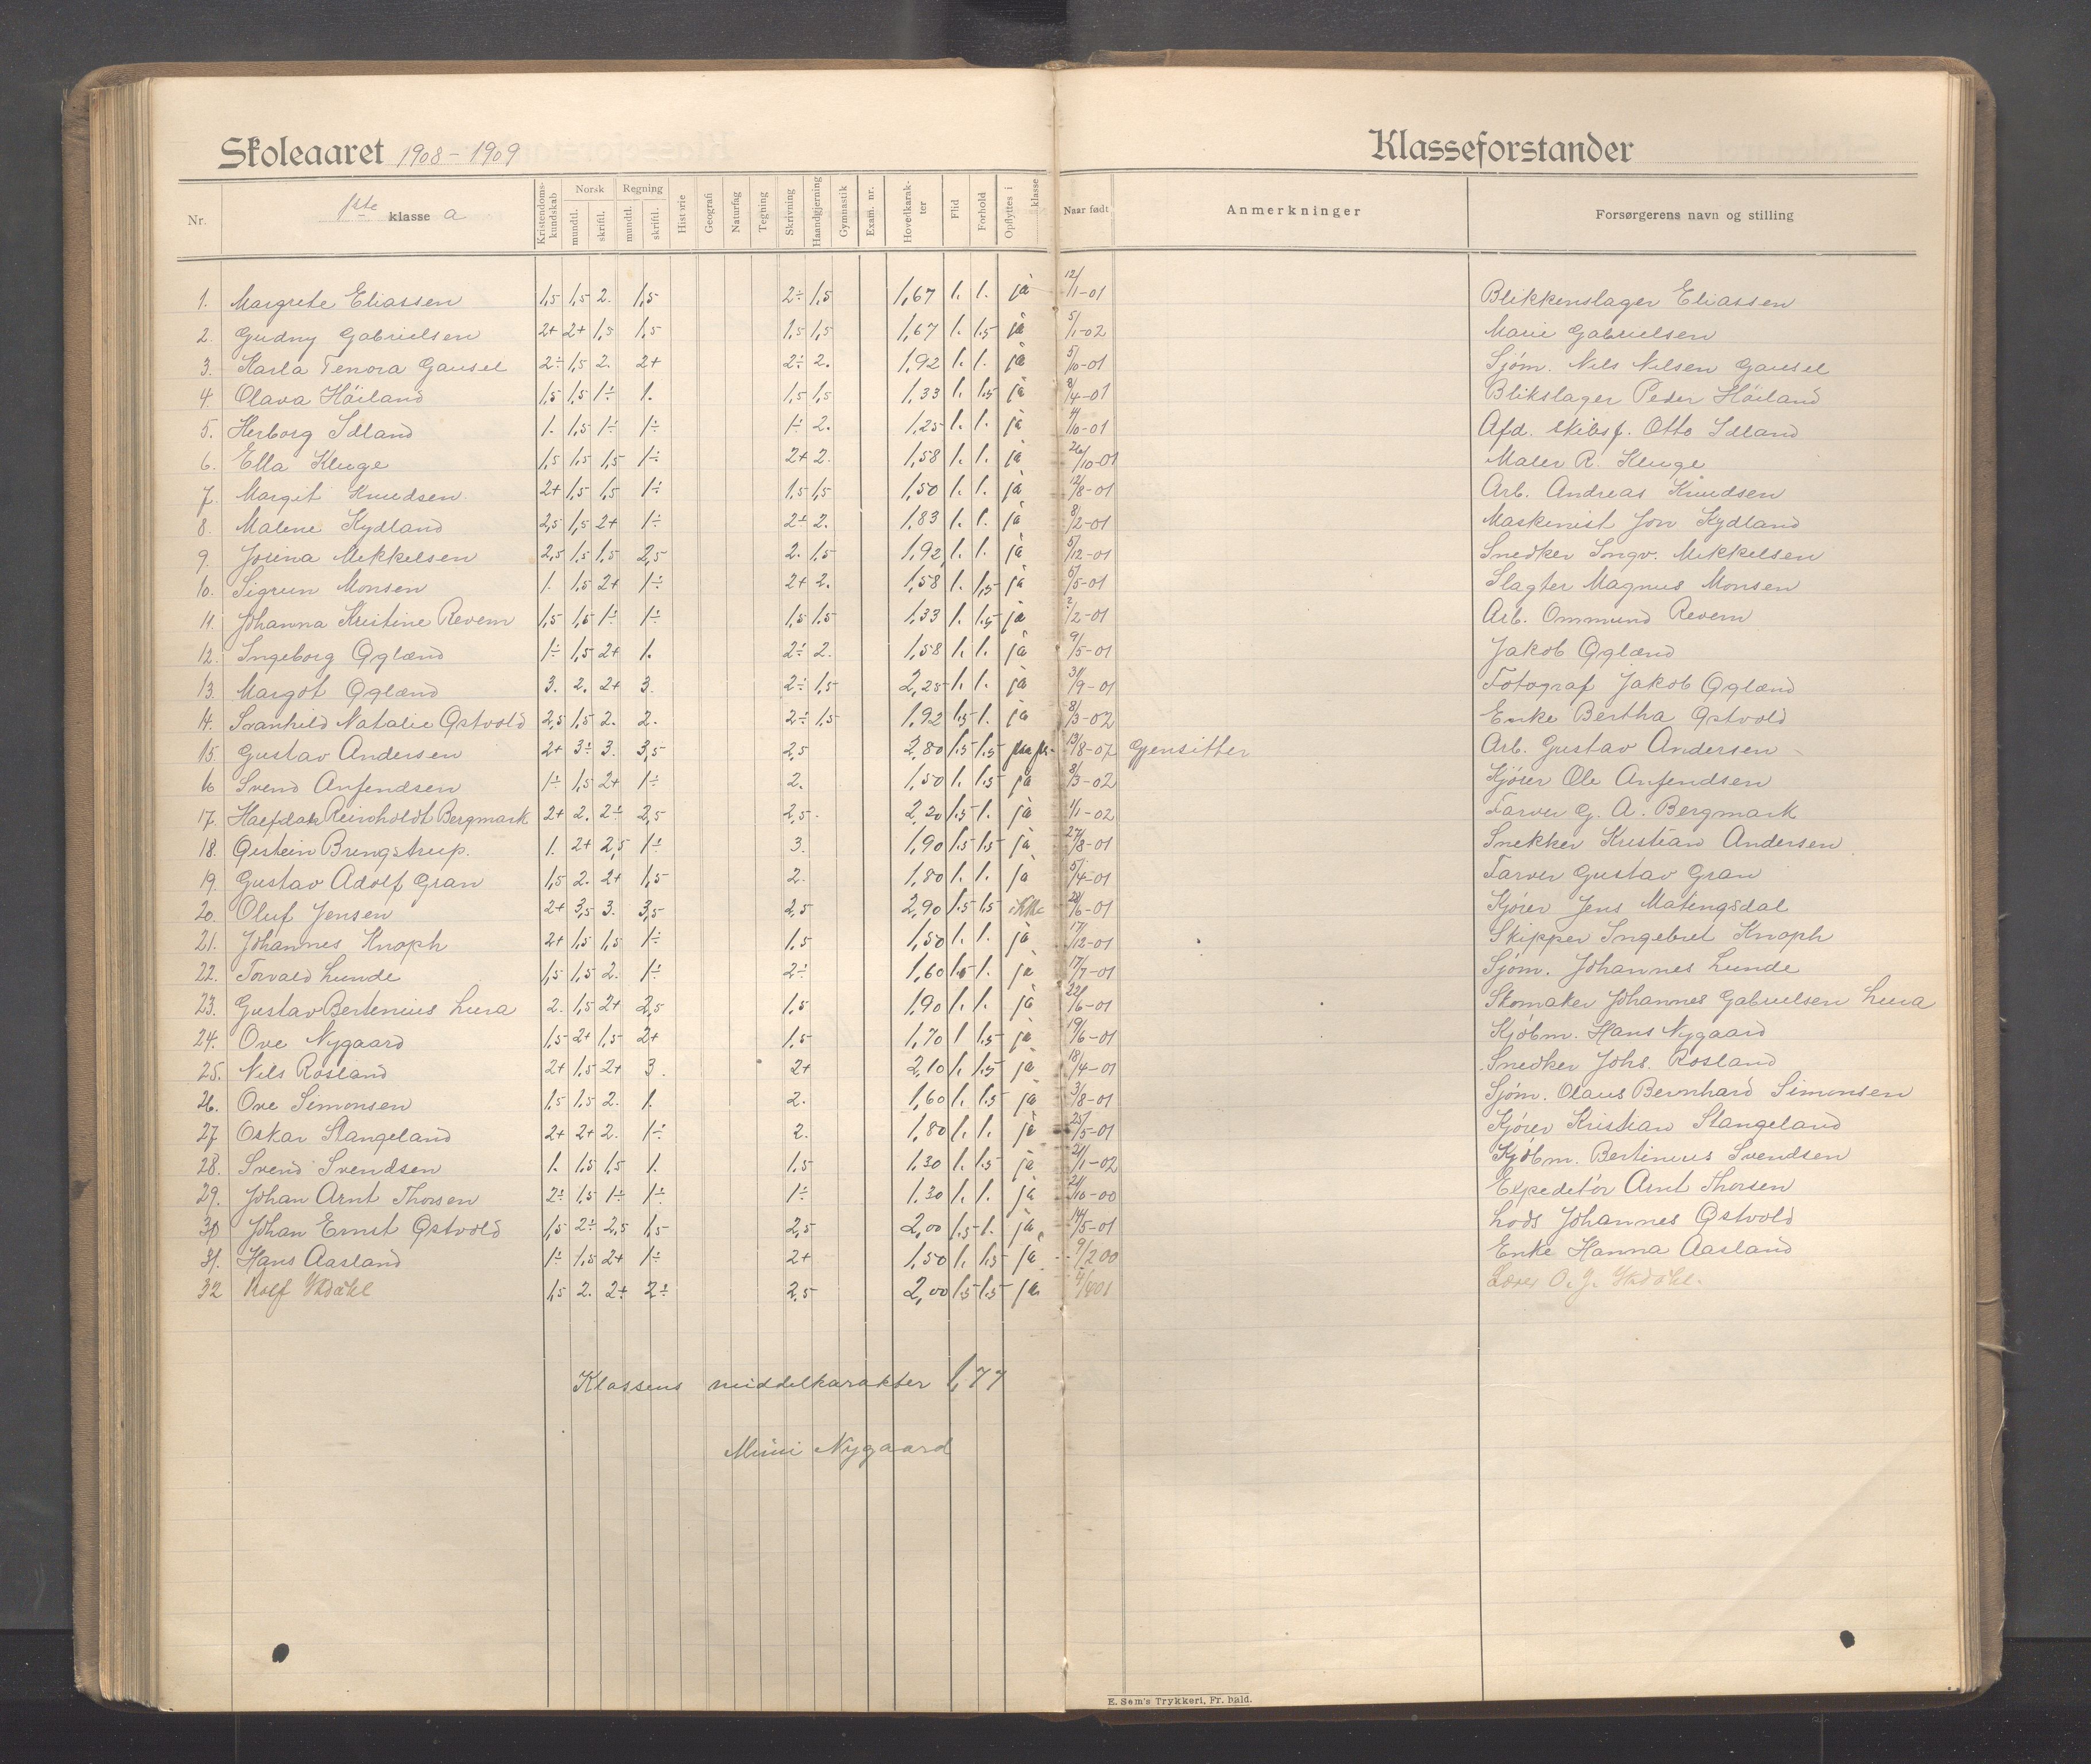 Skoleaaret 1908-1909
Klasseforstander
Nr. 1ste klasse a Kristendomskundskab Norsk mundtl. skriftl. Regning mundtl. skriftl. Historie Geografi Naturfag Tegning Skrivning Haandgjerning Gymnastik Exam. nr. Hovedkarakter Flid Forhold Opflyttes i klasse Naar født Anmerkninger Forsørgerens navn og stilling
1. Margrete Eliassen 1,5 1,5 2. 1,5 2÷ 1,5 1,67 1. 1. ja 12/1-01 Blikkenslager Eliassen
2. Gudny Gabrielsen 2+ 2+ 1,5 1,5 1,5 1,5 1,67 1. 1.5 ja 5/1-02 Marie Gabrielsen
3. Karla Tenora Gausel 2÷ 1,5 2. 2+ 2÷ 2. 1,92 1. 1. ja 5/10-01 Sjøm. Nils Nilsen Gausel
4 Olava Höiland 1,5 1,5 1÷ 1. 1,5 1,5 1,33 1. 1.5 ja 8/4-01 Blikslager Peder Höiland
5. Herborg Idland 1. 1,5 1÷ 1÷ 1÷ 2. 1,25 1. 1. ja 11/10-01 Afd. skibsf. Otto Idland
6. Ella Kluge 1,5 1,5 1,5 1÷ 2+ 2. 1,58 1. 1. ja 26/10-01 Maler R. Kluge
7. Margit Knudsen 2+ 1,5 1,5 1÷ 1,5 1,5 1,50 1. 1. ja 12/8-01 Arb. Andreas Knudsen
8. Malene Kydland 2,5 1,5 2+ 1÷ 2÷ 2. 1,83 1. 1. ja 8/2-01 Maskinist Jon Kydland
9. Josina Mikkelsen 2,5 1,5 1,5 2,5 2. 1,5 1,92 1. 1. ja 5/12-01 Snedker Ingv. Mikkelsen
10. Sigrun Monsen 1. 1,5 2+ 1÷ 2+ 2. 1,58 1. 1,5 ja 5/5-01 Slagter Magnus Monsen
11. Johanna Kristine Revem 1,5 1,5 1÷ 1÷ 1,5 1,5 1,33 1. 1.5 ja 2/2-01 Arb. Ommund Revem
12. Ingeborg Øglænd 1÷ 1,5 2+ 1. 2÷ 2. 1,58 1. 1. ja 9/5-01 Jakob Øglænd
13. Margot Øglænd 3. 2. 2+ 3. 2÷ 1,5 2,25 1. 1. ja /9-01 Fotograf Jakob Øglænd
14. Svanhild Natalie Østvold 2,5 1,5 2. 2. 2÷ 1,5 1,92 1.5 1. ja 8/3-02 Enke Bertha Østvold
15. Gustav Andersen 2+ 3÷ 3. 3,5 2,5 2,80 1.5 1.5 13/8-07 Gjensitter Arb. Gustav Andersen
16 Svend Anfendsen 1÷ 1,5 2+ 1÷ 2. 1,50 1. 1.5 ja 8/3-02 Kjører Ole Anfendsen
17. Halfdan Reinholdt Bergmark 2+ 2. 2÷ 2,5 2,5. 2,20 1.5 1. ja 1/1-02 Farver G. A. Bergmark
18. Øistein Brengstrup. 1. 2+ 2,5 1÷ 3. 1,90 1.5 1.5 ja 27/8-01 Snekker Kristian Andersen
19. Gustav Adolf Gran 1,5 2. 2+ 1,5 2. 1,80 1. 1. ja 5/4-01 Farver Gustav Gran
20. Oluf Jensen 2+ 3,5 3. 3,5 2,5 2,90 1.5 1.5 ikke 28/6-01 Kjører Jens Matingsdal
21. Johannes Knoph 2+ 1,5 1,5 1÷ 1,5 1,50 1. 1. ja 17/12-01 Skipper Ingebret Knoph
22. Torvald Lunde 1,5 1,5 2. 1÷ 2÷ 1,60 1.5 1. ja 17/7-01 Sjøm. Johannes Lunde
23. Gustav Bertenius Lura 2. 1,5 2+ 2,5 1,5 1,90 1. 1. ja 22/6-01 Skomaker Johannes Gabrielsen Lura
24. Ove Nygaard 1,5 2+ 1,5 2+ 1,5 1,70 1 1.5 ja 19/6-01 Kjøbm. Hans Nygaard
25. Nils Rosland 2+ 1,5 2+ 3. 2+ 2,10 1. 1.5 ja 18/4-01 Snedker Johs. Rosland
26. Ove Simonsen 1,5 1,5 2. 1. 2. 1,60 1. 1.5 ja 3/8-01 Sjøm. Olaus Bernhard Simonsen
27. Oskar Stangeland 2+ 2+ 2. 1÷ 2. 1,80 1. 1. ja 25/5-01 Kjører Kristian Stangeland
28. Svend Svendsen 1. 1,5 1,5 1. 1,5 1,30 1. 1.5 ja 21/1-02 Kjøbm. Bertinius Svendsen
29. Johan Arnt Thorsen 2÷ 1,5 1÷ 1÷ 1÷ 1.30 1. 1. ja 21/10-00 Expeditör Arnt Thorsen
30 Johan Ernst Østvold 1,5 2÷ 2,5 1,5 2,5 2,00 1.5 1. ja 14/5-01 Lods Johannes Østvold
31. Hans Aasland 1÷ 1,5 2+ 1÷ 2+ 1,50 1. 1.5 ja 9/2 00 Enke Hanna Aasland
32 Rolf 1,5 2. 2+ 2÷ 2,5 2,00 1.5 1.5 ja Lærer O. J.
Klassens middelkarakter 1,77
Mimi Nygaard
E. Sem's Trykkeri, Fr. hald.